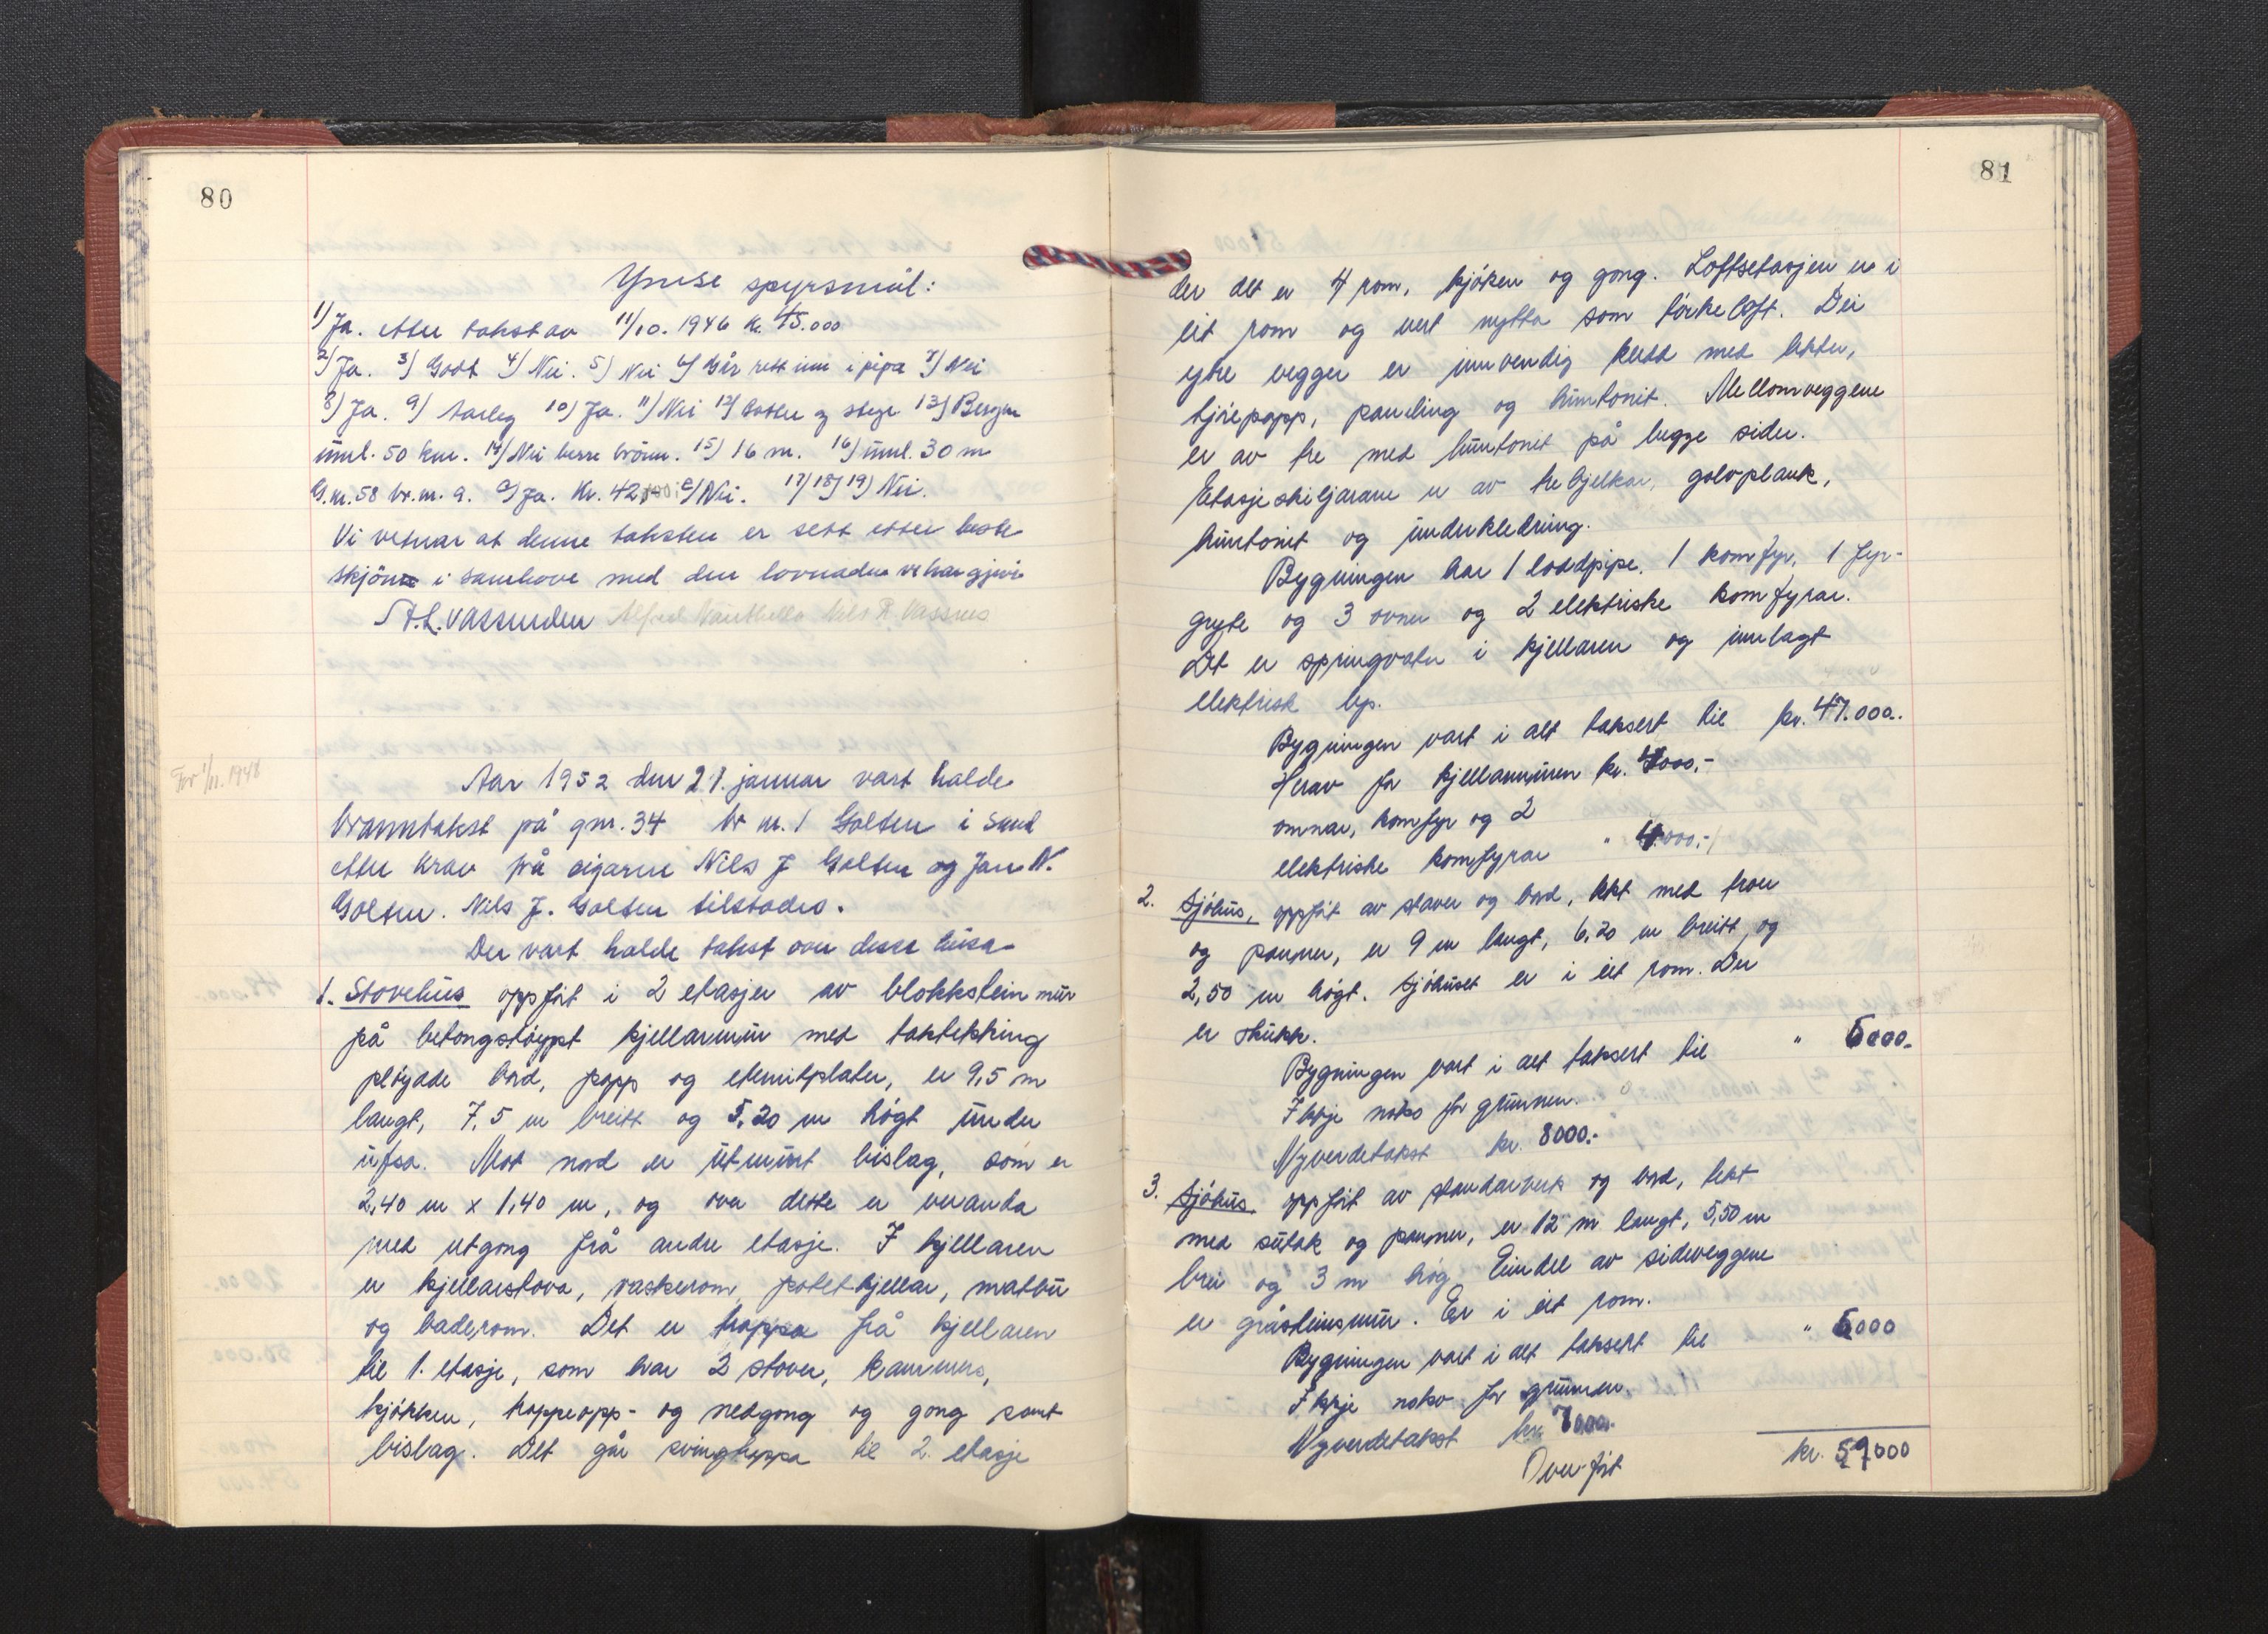 80
Ymse spyrsmål:
1) Ja. etter takst av 11/10. 1946 kr. 45.000
2) Ja. 3) Godt 4) Nei. 5) Nei 6) Går rett inn i pipa 7) Nei
8) Ja. 9) Farleg 10) Ja. 11) Nei 12) Bøtter og stige 13) Bergen
uml. 50 km. 14) Nei berre brönn. 15) 16 m. 16) uml. 30 m
G.nr. 58 br.nr. 9. a) Ja. Kr. 42 c) Nei. 17) 18) 19) Nei.
Vi vitnar at denne taksten er sett etter beste
skjön i samhove med den lovnaden vi har gjevi
A.L. Vassenden Alfred Nils R Vassnes
For 1/11. 1948
Aar 1952 den 21. januar vart halde
branntakst på gnr. 34 br nr. 1 Golten i Sund
etter krav frå eigarne Nils J Golten og Jan N.
Golten. Nils J. Golten tilstades.
Der vart halde takst over desse husa
1. Stovehus oppfört i 2 etasjer av blokkstein mur
på betongstöypt kjellarmur med taktekking
plöyade bord, papp og eternitplater, er 9,5 m
langt, 7,5 m breitt og 5,20 m högt under
ufsa. Mot nord er utmurt bislag, som er
2,40 m x 1,40 m, og over dette er veranda
med utgong frå andre etasje. I kjellaren
er kjellarstova, vaskerom, potetkjellar, matbu
og baderom. Det er trappa frå kjellaren
til 1. etasje, som har 2 stover, kammers,
kjökken, trappeopp- og nedgong og gong samt
bislag. Det går svingtrappa til 2. etasje
81
der det er 4 rom, kjöken og gong. Loftsetasjen er i
eit rom og vert nytta som törkeloft. Dei
ytre vegger er innvendig kledd med lekter,
tjörepapp, panling og huntonit. Mellomveggene
er av tre med huntonit på begge sider.
Etasjeskiljarane er av trebjelkar, golvplank,
huntonit og underkledning.
Bygningen har 1 loddpipe, 1 komfyr, 1 fyr-
gryte og 3 ovner og 2 elektriske komfyrar.
Det er springvatn i kjellaren og innlagt
elektrisk lys.
Bygningen vart i alt taksert til kr. 47.000.
Herav for kjellarmuren kr. 000,-
omnar, komfyr og 2
elektriske komfyrar " 4.000,-
2. Sjöhus, oppfört av staver og bord, tekt med troer
og panner, er 9 m langt, 6,20 m breitt, og
2,50 m högt. Sjöhuset er i eit rom. Der
er skukk.
Bygningen vart i alt taksert til " 6000.
Ikkje noko for grunnen.
Nyverdetakst kr. 8000.-
3. Sjöhus oppfört av standarverk og bord, tekt
med sutak og panner, er 12 m langt, 5,50 m
brei og 3 m hög. Ein del av sideveggene
er gråsteinsmur. Er i eit rom.
Bygningen vart i alt taksert til " 6000
Ikkje noko for grunnen.
Nyverdetakst kr. 7000.
Overfört kr. 59000